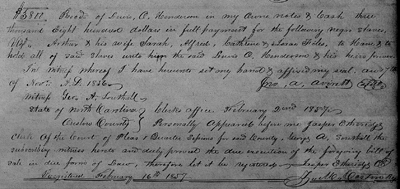 $3800. Recd. of Lewis, A. Henderson in my Acove notes & Cash three
thousand Eight hundred dollars in full payment for the following negro slaves,
Arthur & his wife Sarah, Alfred, Catharine & Lucas Files, to Have &
hold all of said slaves unto him the said Lewis A. Henderson & his heirs forever
In witness whereof I have hereunto set my hand & affixed my seal,
of Novr. A.D. 1856 Jno, A, Averitt
Witness Geo. A. Smithell
State of north Carolina Clerks office February 2nd 1857.
Onslow County Personally Appeared before me Jasper Etheridge
Clerk of the Court of Pleas & Quarter Sessions for said County, George A. Smithell the
subscribing witness hereto and duly proved the due execution of the foregoing bill of
sale in due form of Law, therefore let it be registered Jasper Etheridge Clk
Registered February 16th 1857